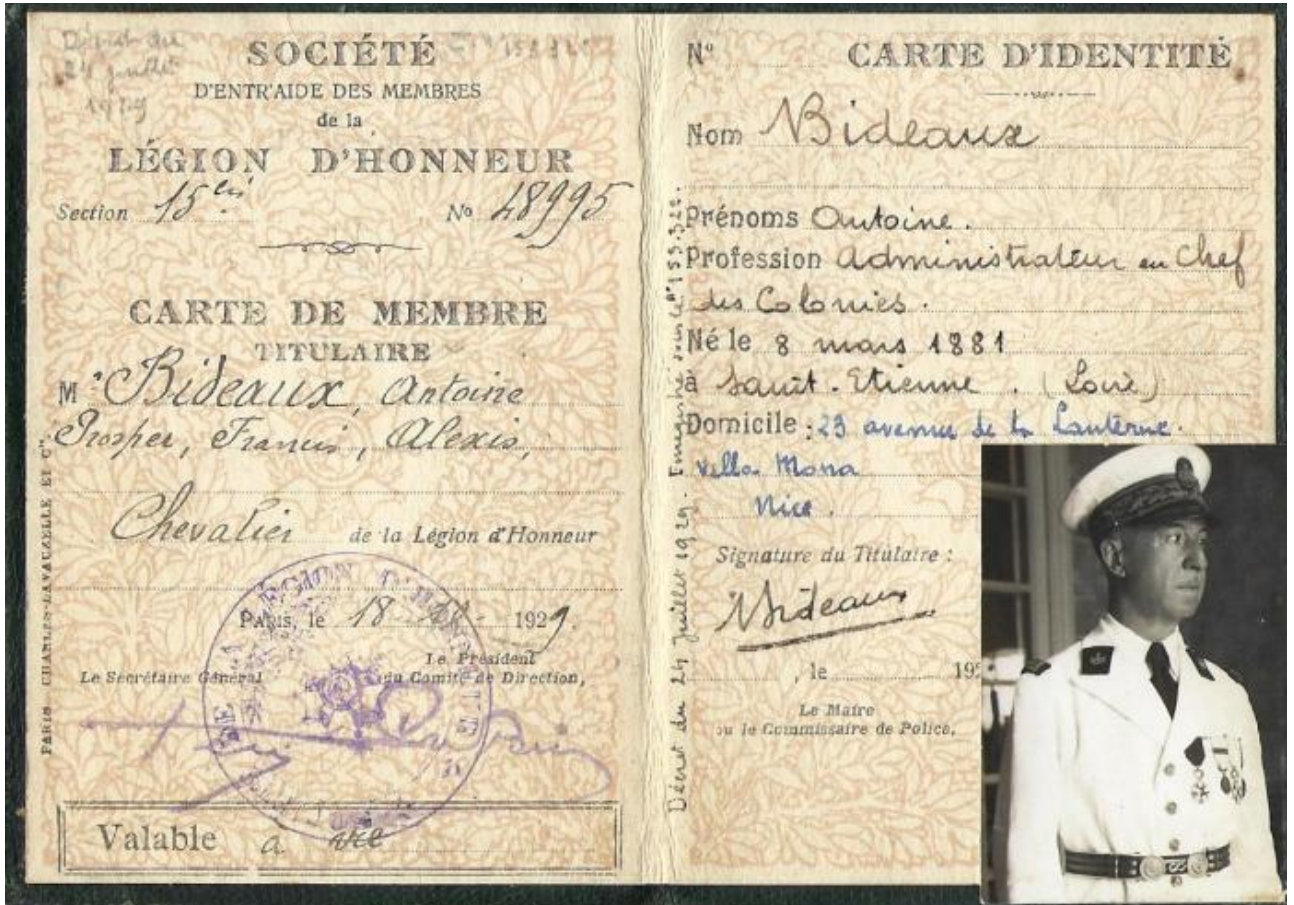 Décret du
24 juillet
1929
SOCIÉTÉ
D'ENTR'AIDE DES MEMBRES
de la
LÉGION D'HONNEUR
Section 15
No 48995
CARTE DE MEMBRE
TITULAIRE
M Bideaux, Antoine
Prosper, Francis, Alexis,
Chevalier de la Légion d'Honneur
PARIS, le 18 1929.
Le Secrétaire Général
Le Président
du Comité de Direction,
Valable a vie
PARIS CHARLES-LAVAUZELLE ET Cie
LÉGION D'HONNEUR
Décret du 24 juillet 1929. Enregistré sous le n° 153.320.
N° CARTE D'IDENTITÉ
Nom Bideaux
Prénoms Antoine.
Profession Administrateur en Chef
des Colonies.
Né le 8 mars 1881
à Saint-Etienne. (Loire)
Domicile : 23 avenue de la Lanterne.
villa Mona
Nice.
Signature du Titulaire :
Bideaux
, le 19
Le Maire
ou le Commissaire de Police,